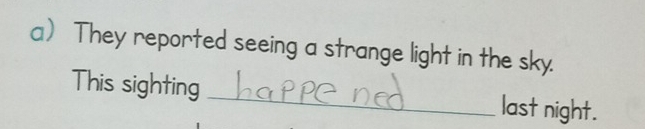 a) They reported seeing a strange light in the sky.
This sighting happened last night.